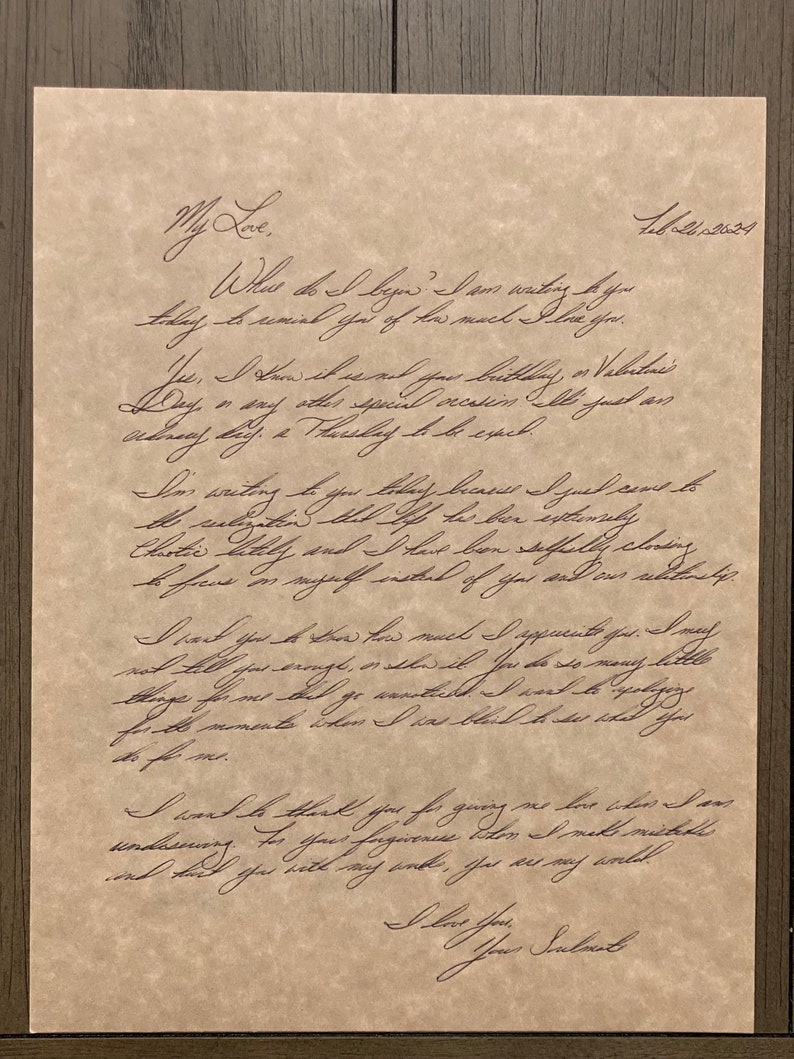 My Love,
Feb 26, 2024
Where do I begin? I am writing to you
today to remind you of how much I love you.
Yes, I know it is not your birthday, or Valentine's
Day, or any other special occasion. It's just an
ordinary day. a Thursday to be exact.
I'm writing to you today because I just came to
the realization that life has been extremely
chaotic lately and I have been selfishly choosing
to focus on myself instead of you and our relationship.
I want you to know how much I appreciate you. I may
not tell you enough, or show it. You do so many little
things for me that go unnoticed. I want to apologize
for the moments when I was blind to see what you
do for me.
I want to thank you for giving me love when I am
undeserving. For your forgiveness when I make mistakes
and hurt you with my words, you are my world.
I love you,
Your Soulmate